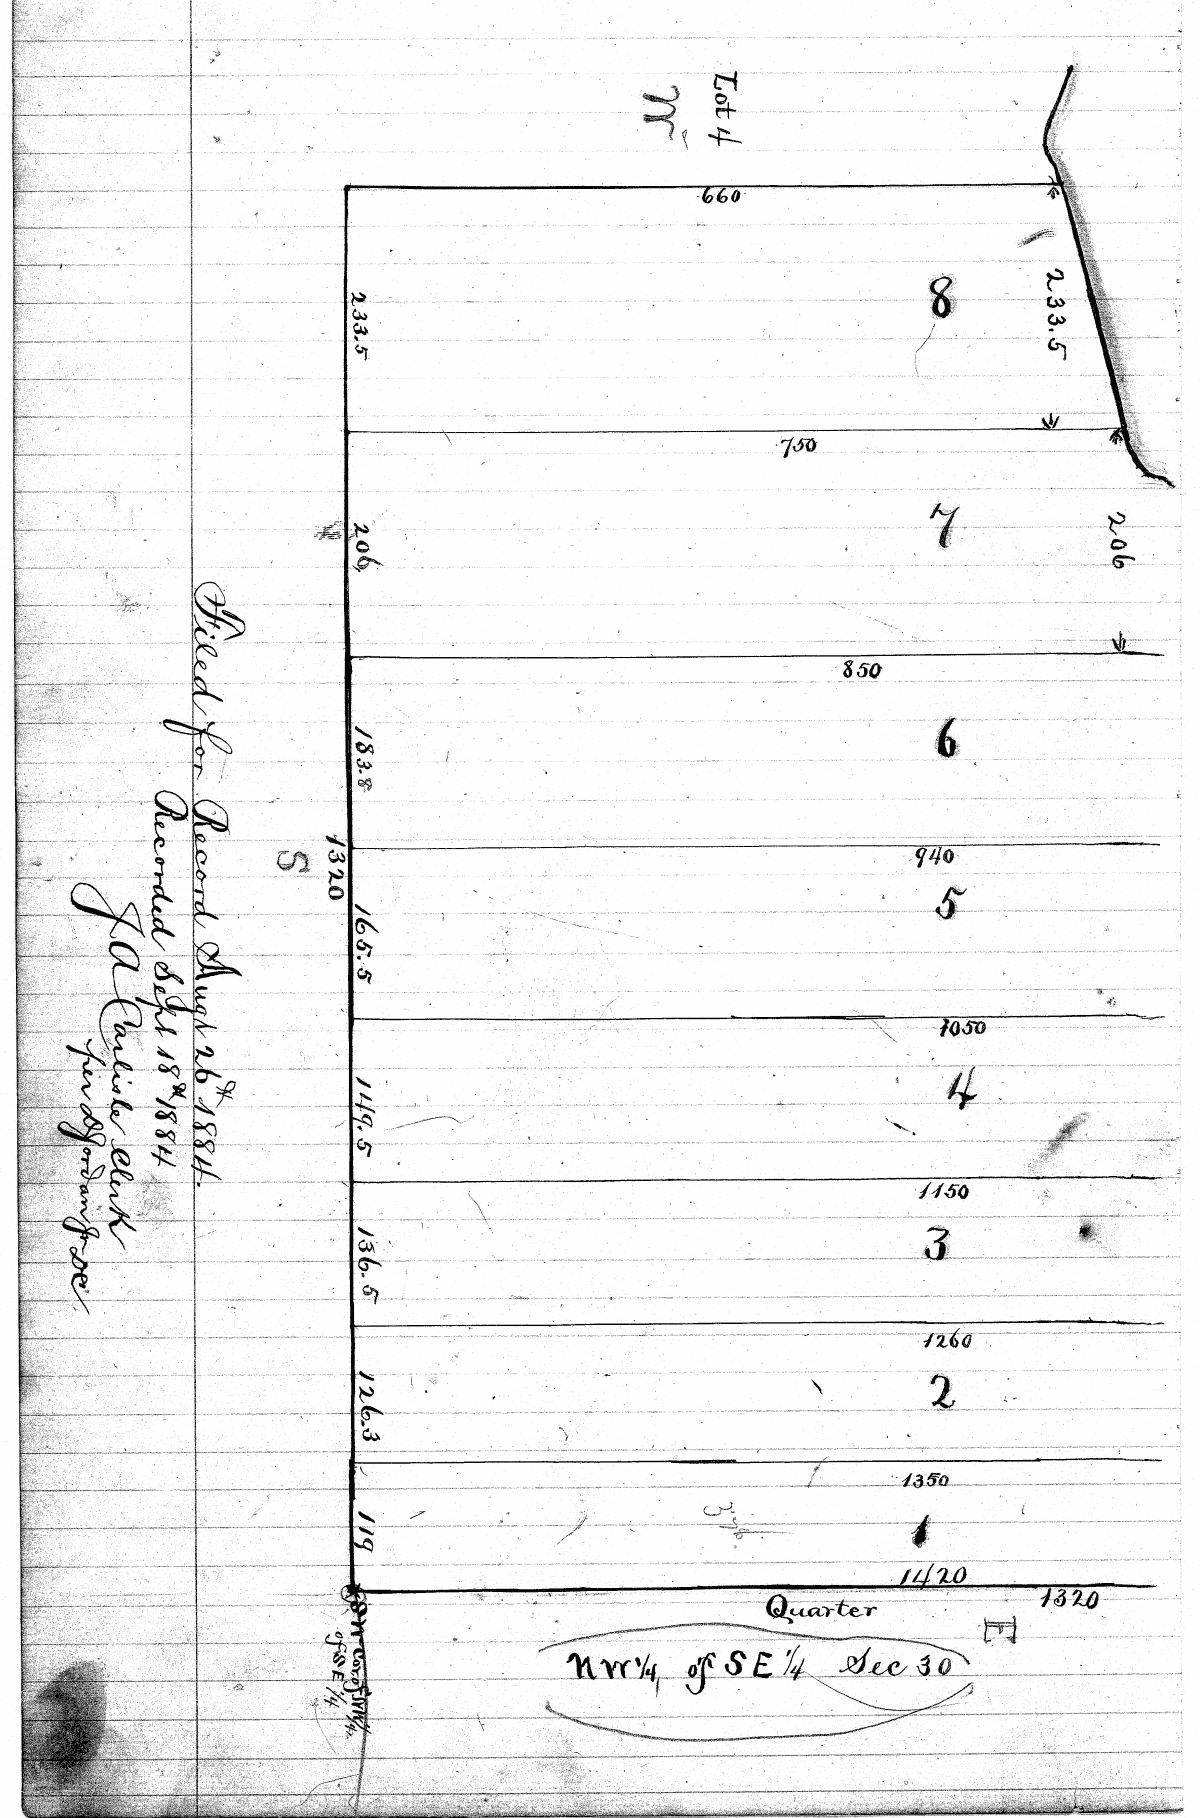 Lot 4
W
660
8
233.5
233.5
750
7
206
206
850
6
183.8
940
5
1320
S
165.5
1050
4
149.5
1150
3
136.5
1260
2
126.3
1350
1
119
1420
1320
Quarter
E
NW 1/4 of SE 1/4 Sec 30
SW Cor of NW 1/4
of SE 1/4
Filed for Record Augt 26th 1884.
Recorded Sept 18th 1884
J. A. Carlisle Clerk
per